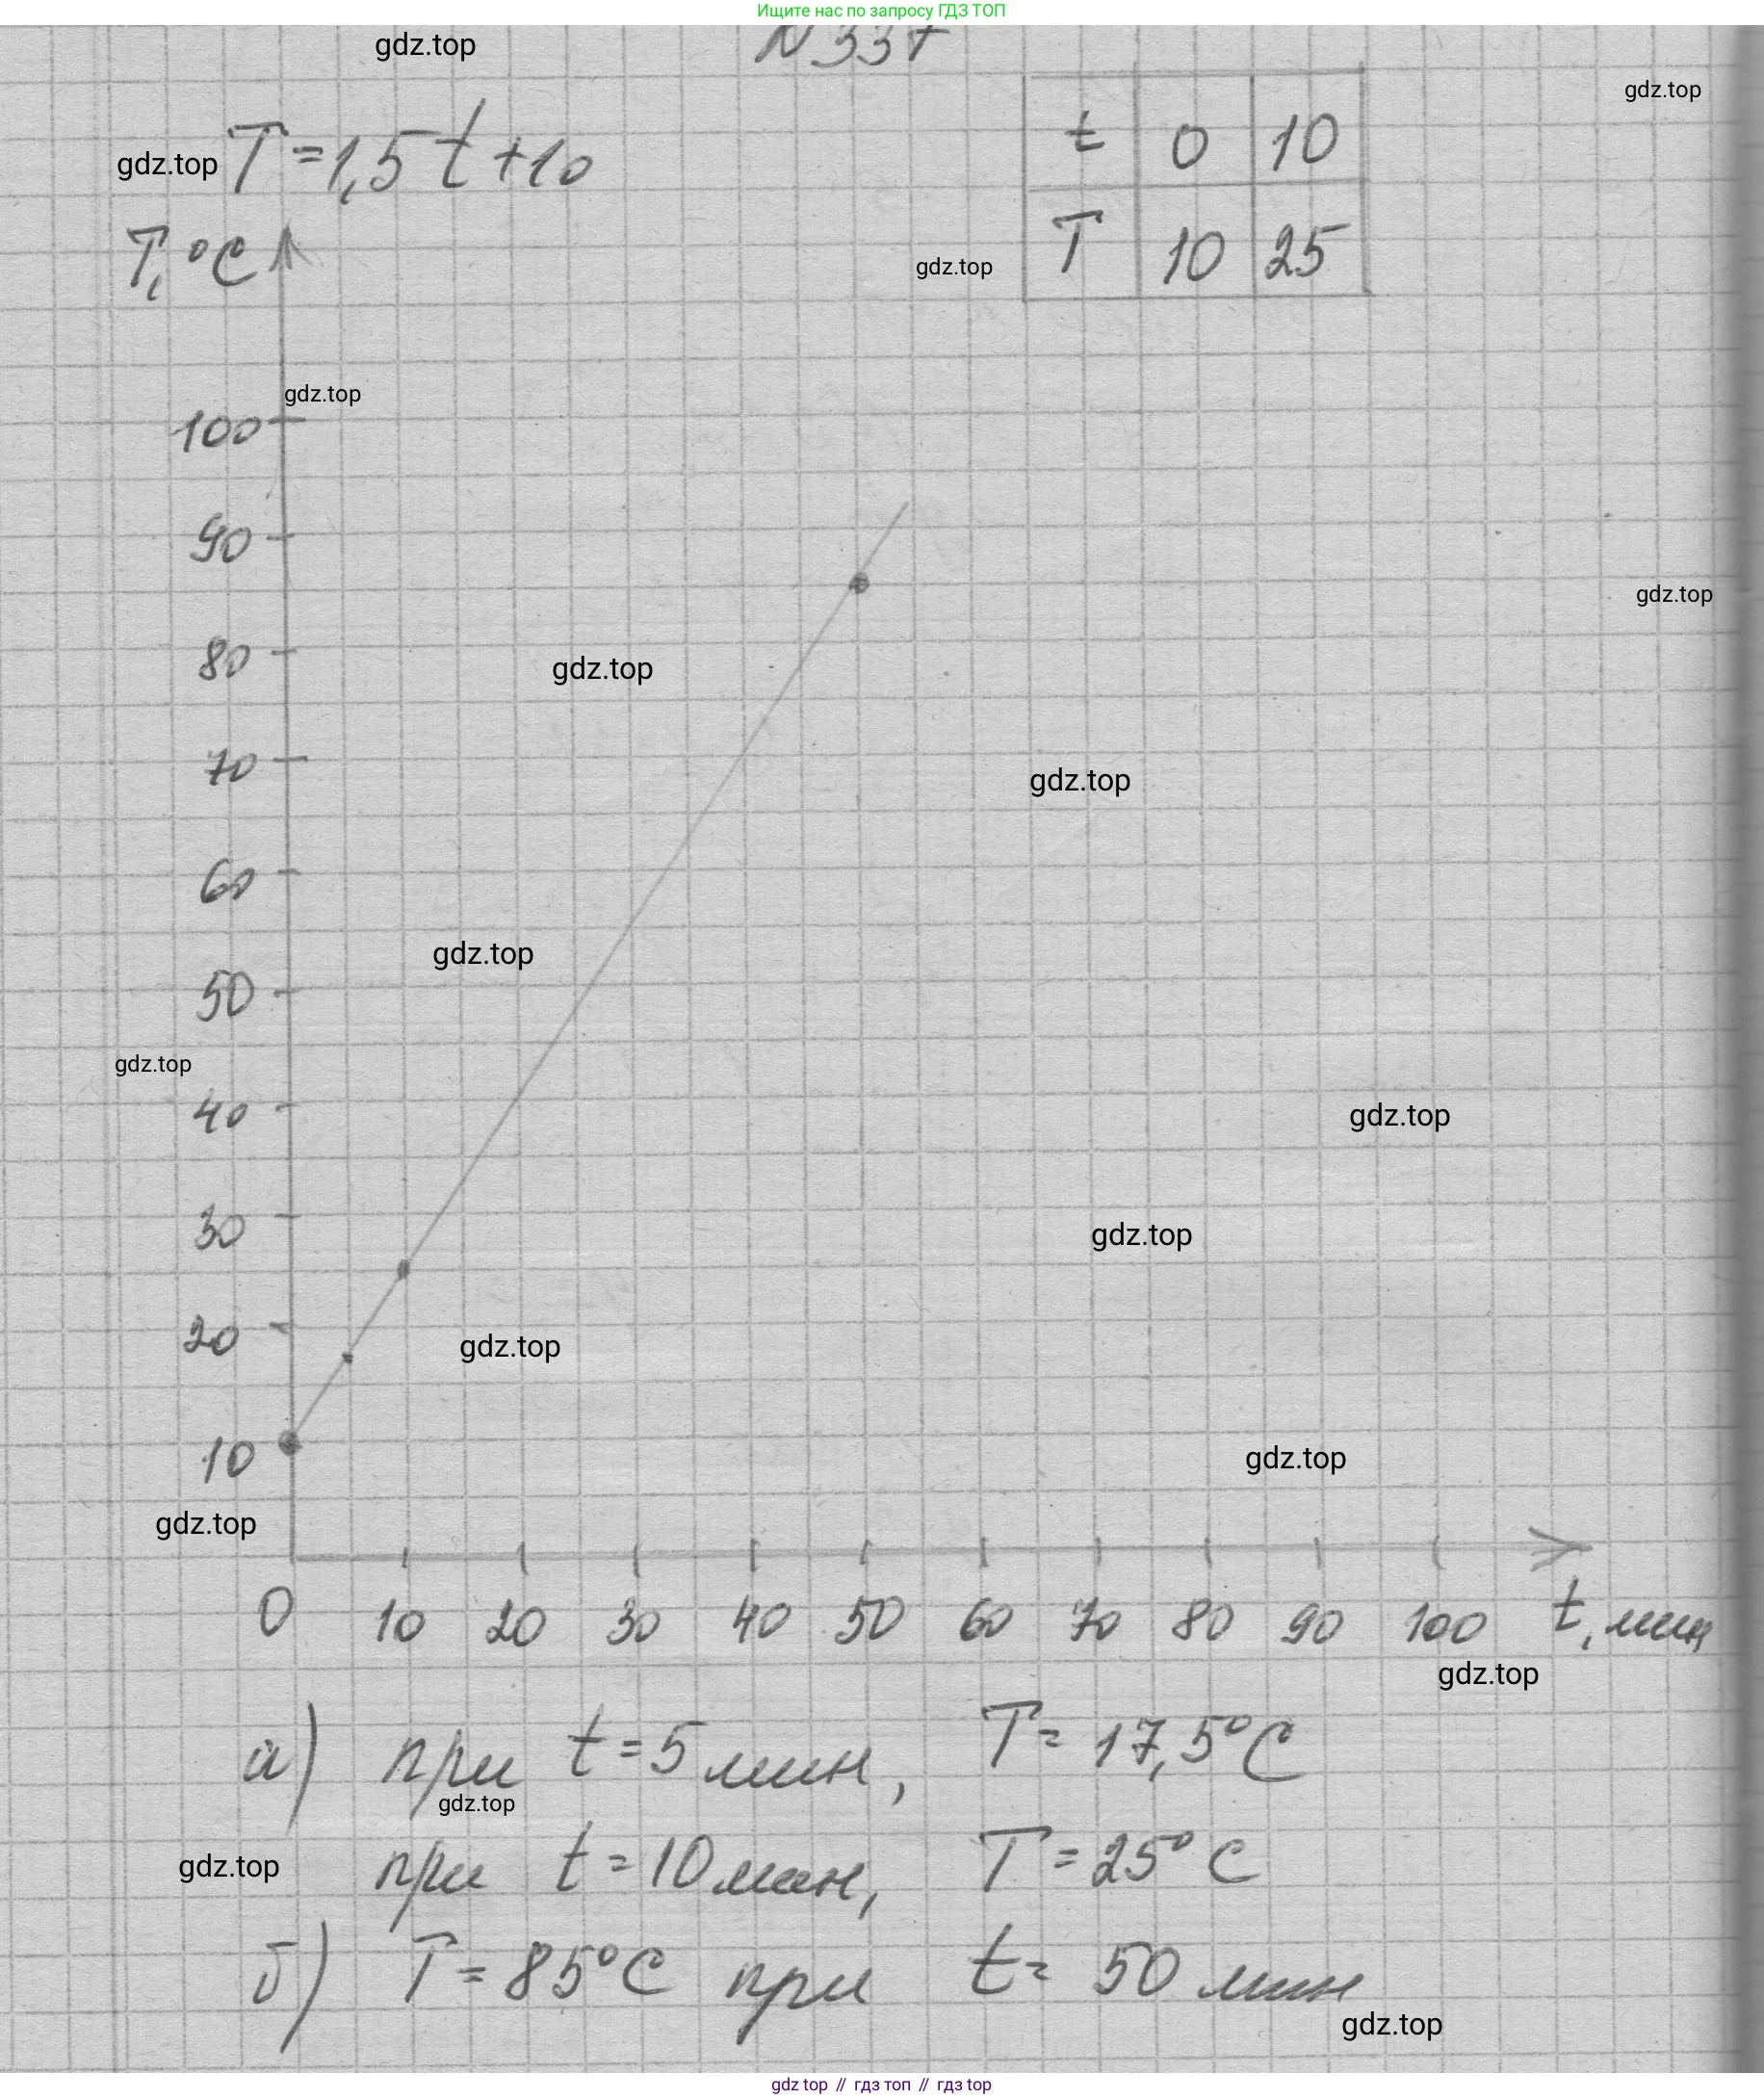 Ищите нас по запросу ГДЗ ТОП
gdz.top
N 337
gdz.top
t 0 10
gdz.top T = 1,5 t + 10
T 10 25
T, °C
gdz.top
gdz.top
100
90
gdz.top
80
gdz.top
70
gdz.top
60
gdz.top
50
gdz.top
40
gdz.top
30
gdz.top
20
gdz.top
10
gdz.top
gdz.top
0 10 20 30 40 50 60 70 80 90 100 t, мин
gdz.top
а) при t = 5 мин, T = 17,5°C
gdz.top
при t = 10 мин, T = 25°C
gdz.top
б) T = 85°C при t = 50 мин
gdz.top
gdz top // гдз топ // гдз top